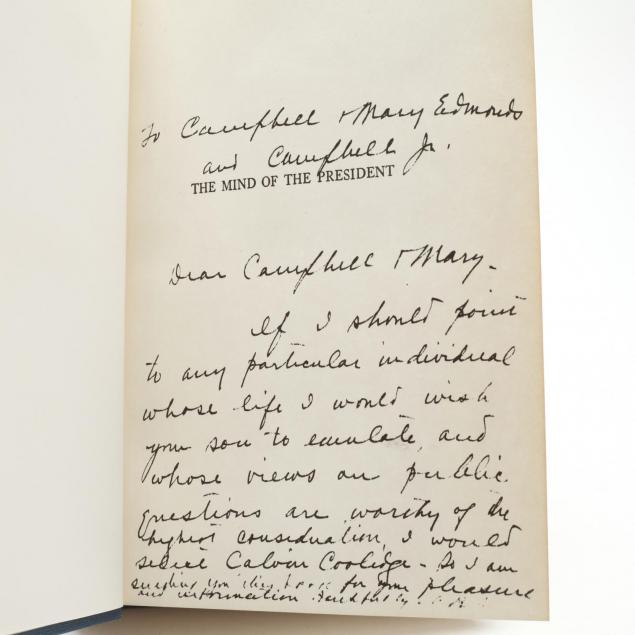 To Campbell & Mary Edmonds
and Campbell Jr.
THE MIND OF THE PRESIDENT
Dear Campbell & Mary -
If I should point
to any particular individual
whose life I would wish
your son to emulate, and
whose views on public
questions are worthy of the
highest consideration, I would
select Calvin Coolidge - So I am
sending you this book for your pleasure
and information